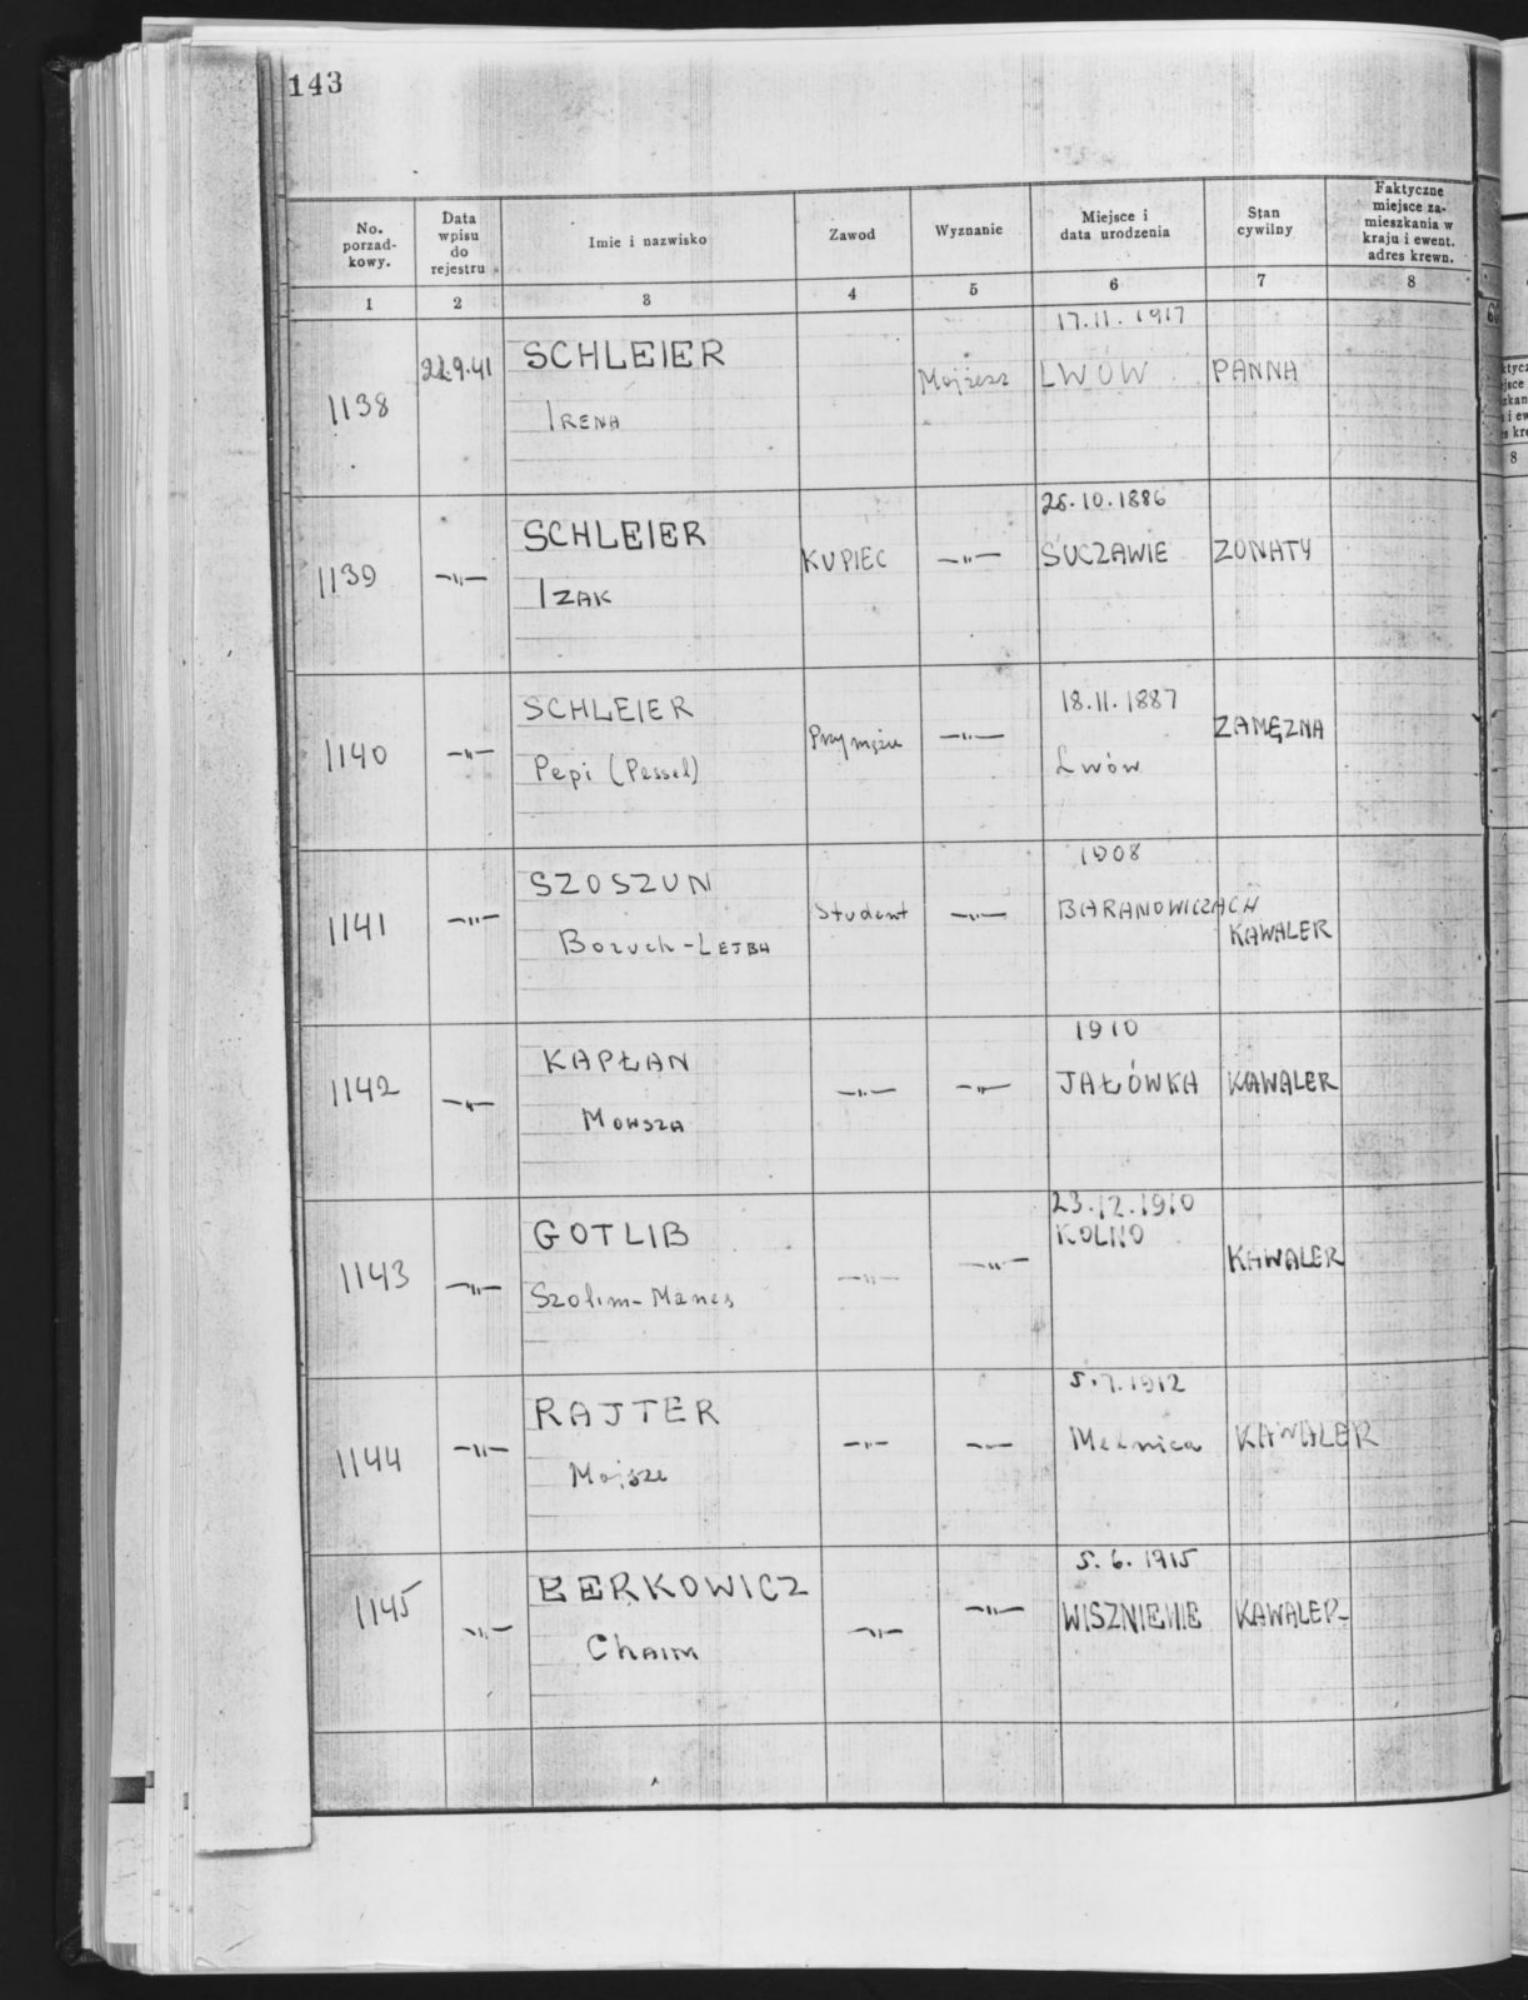 143
No. porzad-kowy.
Data wpisu do rejestru
Imie i nazwisko
Zawod
Wyznanie
Miejsce i data urodzenia
Stan cywilny
Faktyczne miejsce za-mieszkania w kraju i ewent. adres krewn.
1 2 3 4 5 6 7 8
17.11.1917
1138 22.9.41 SCHLEIER Mojżesz LWÓW PANNA
IRENA
26.10.1886
1139 —"— SCHLEIER KUPIEC —"— SUCZAWIE ZONATY
IZAK
18.11.1887
1140 —"— SCHLEIER Przy mężu —"— ZAMĘZNA
Pepi (Pessel) Lwów
1908
1141 —"— SZOSZUN Student —"— BARANOWICZACH
Boruch-LEJBA KAWALER
1910
1142 —"— KAPŁAN —"— —"— JAŁÓWKA KAWALER
MOWSZA
23.12.1910
1143 —"— GOTLIB —"— —"— KOLNO KAWALER
Szolim-Manes
5.7.1912
1144 —"— RAJTER —"— —"— Melnica KAWALER
Mojsze
5.6.1915
1145 —"— BERKOWICZ —"— —"— WISZNIEWIE KAWALER
Chaim